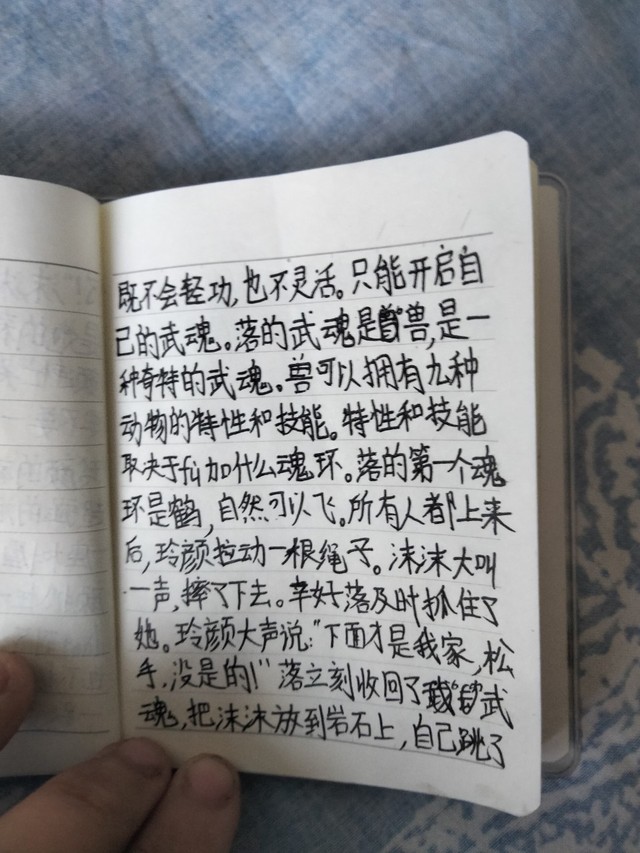 既不会轻功,也不灵活。只能开启自
己的武魂。落的武魂是兽,是一
种奇特的武魂。兽可以拥有九种
动物的特性和技能。特性和技能
取决于fù加什么魂环。落的第一个魂
环是鹤,自然可以飞。所有人都上来
后,玲颜拉动一根绳子。沫沫大叫
一声,摔了下去。辛好落及时抓住了
她。玲颜大声说:"下面才是我家,松
手,没是的!"落立刻收回了武
魂,把沫沫放到岩石上,自己跳了